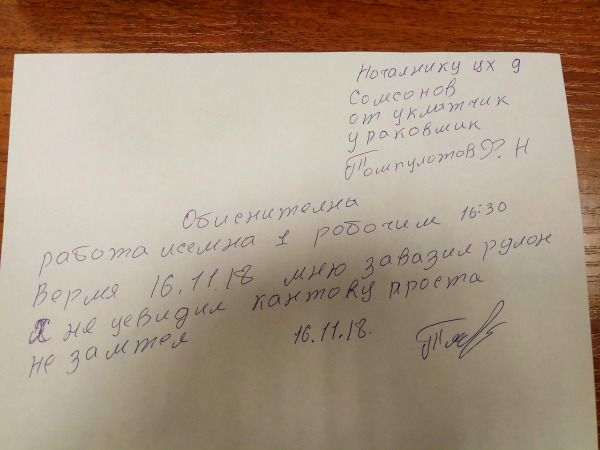 Ночалнику цх 9
Сомсонов
от уклатчик
ураковшик
Томпулотов Э? Н
Обиснителна
работа исемна 1 робочим 16:30
Вермя 16.11.18 мню завазил рулон
Я не уевидил кантову проста
не замтел
16.11.18.